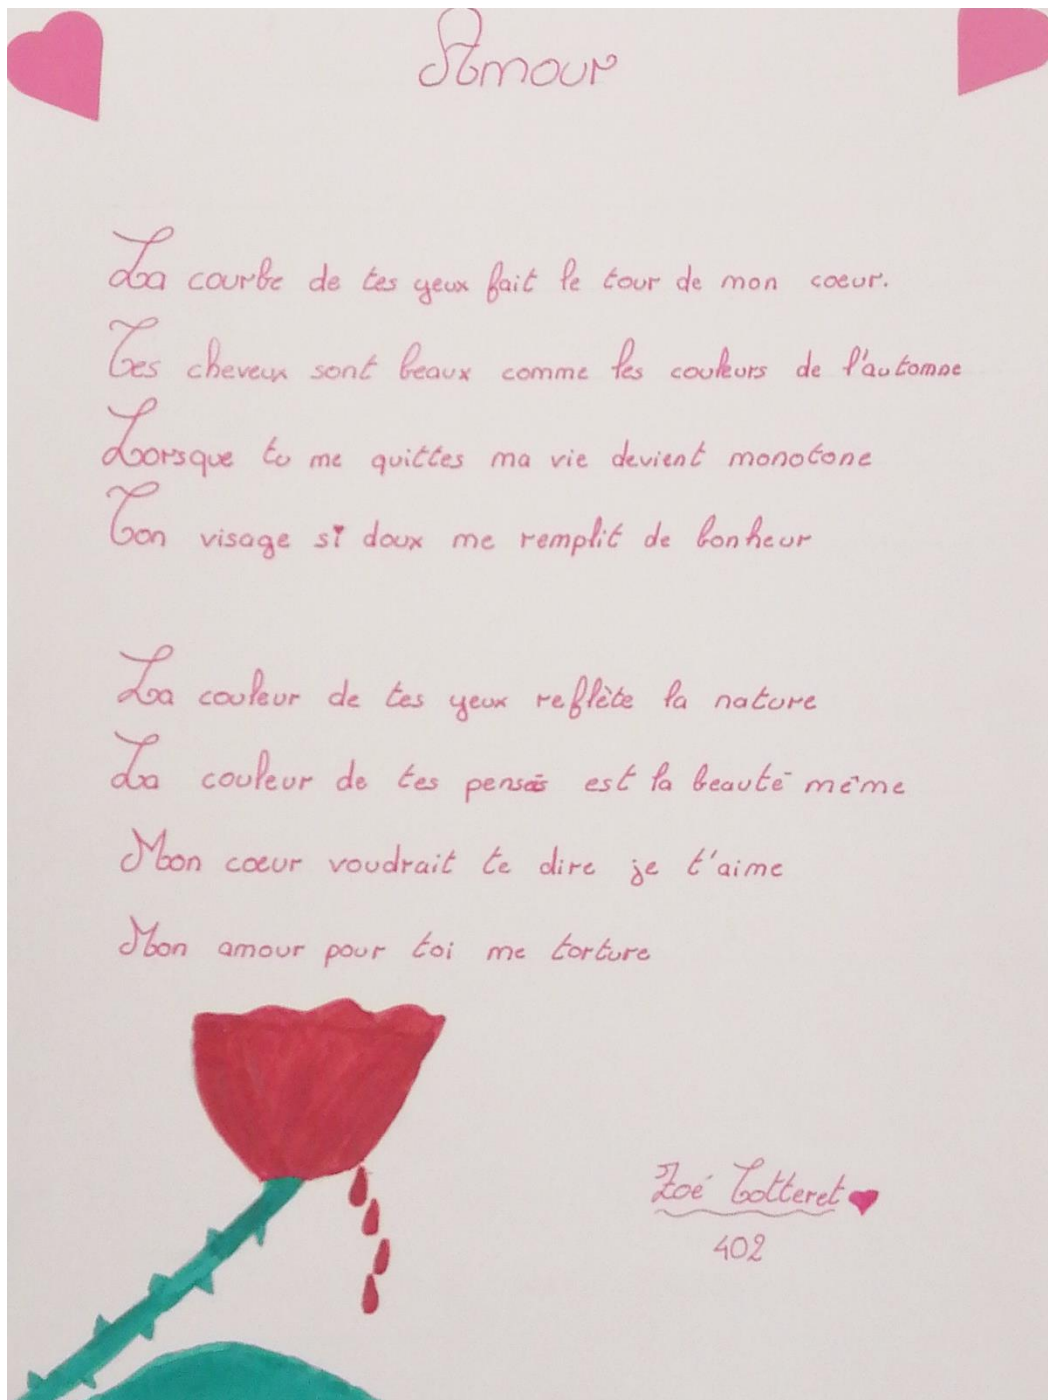 Amour
La courbe de tes yeux fait le tour de mon coeur.
Tes cheveux sont beaux comme les couleurs de l'automne
Lorsque tu me quittes ma vie devient monotone
Ton visage si doux me remplit de bonheur
La couleur de tes yeux reflète la nature
La couleur de tes pensés est la beauté même
Mon cœur voudrait te dire je t'aime
Mon amour pour toi me torture
Zoé Cotteret
402